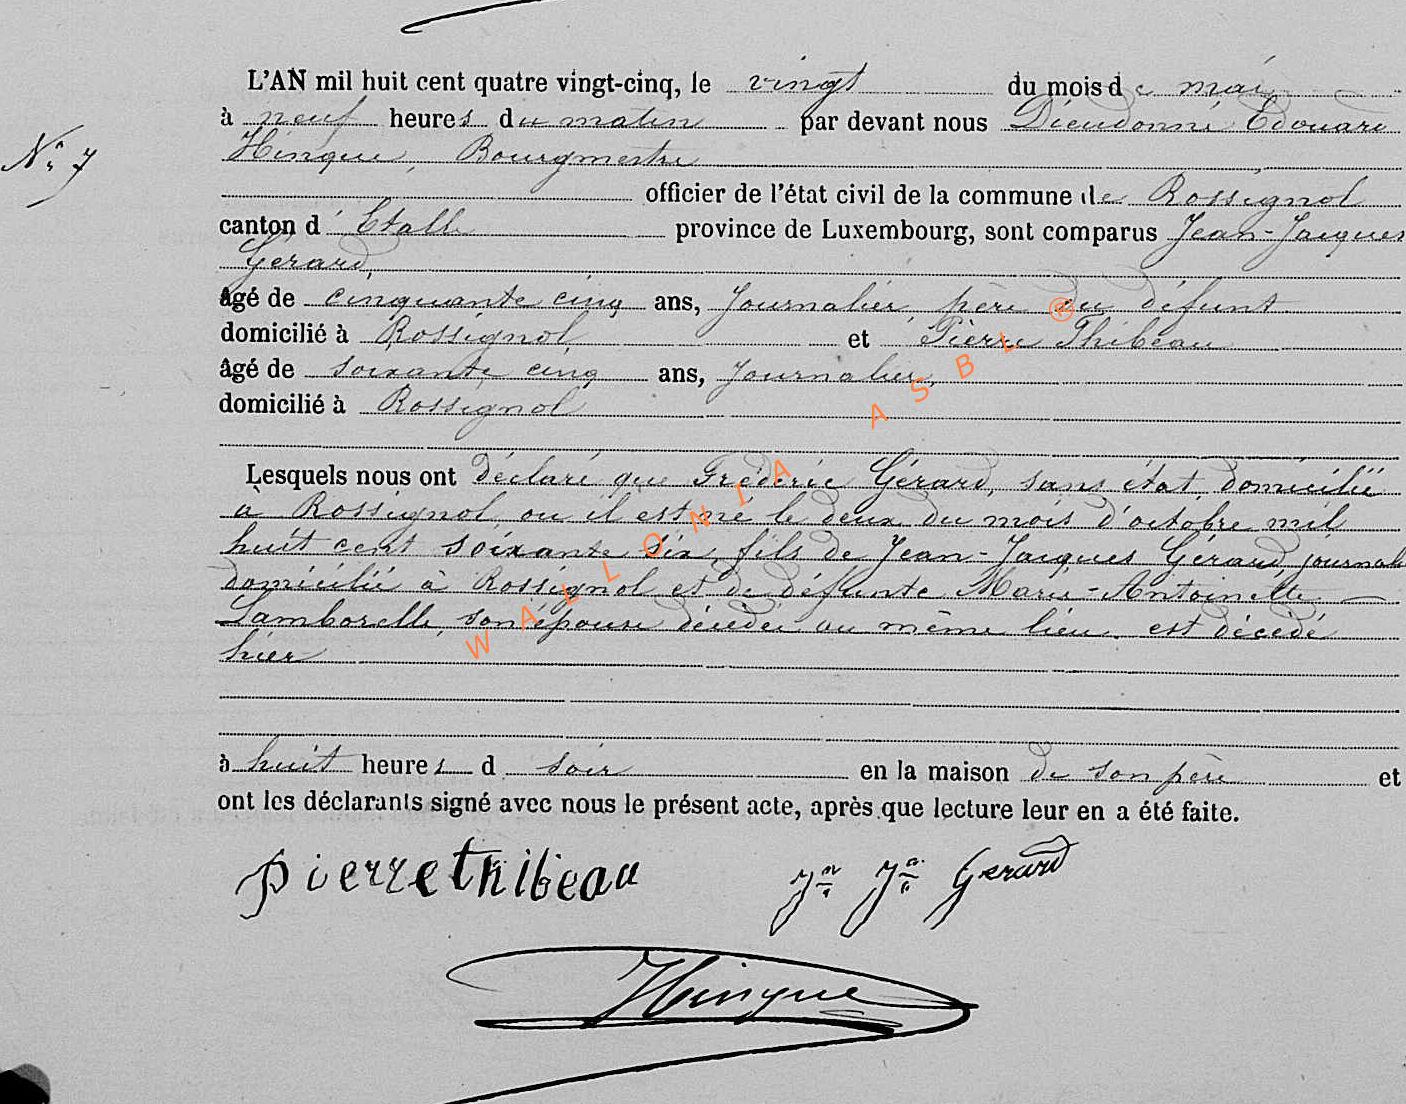 L'AN mil huit cent quatre vingt-cinq, le vingt du mois de mai
à neuf heures du matin par devant nous Dieudonné Edouard
N° 7
Hinque, Bourgmestre
officier de l'état civil de la commune de Rossignol
canton d'Etalle province de Luxembourg, sont comparus Jean-Jacques
Gérard,
âgé de cinquante cinq ans, Journalier, père du défunt
domicilié à Rossignol et Pierre Thibeau
âgé de soixante cinq ans, Journalier,
domicilié à Rossignol
Lesquels nous ont déclaré que Fréderic Gérard, sans état, domicilié
à Rossignol, où il est né le deux du mois d'octobre mil
huit cent soixante six, fils de Jean-Jacques Gérard, journali
domicilié à Rossignol et de défunte Marie-Antoinette
Lamborelle, son épouse décédée au même lieu est décédé
hier
à huit heures d soir en la maison de son père et
ont les déclarants signé avec nous le présent acte, après que lecture leur en a été faite.
pierre thibeau Jn Jq Gerard
Hinque
WALLONIA ASBL ®